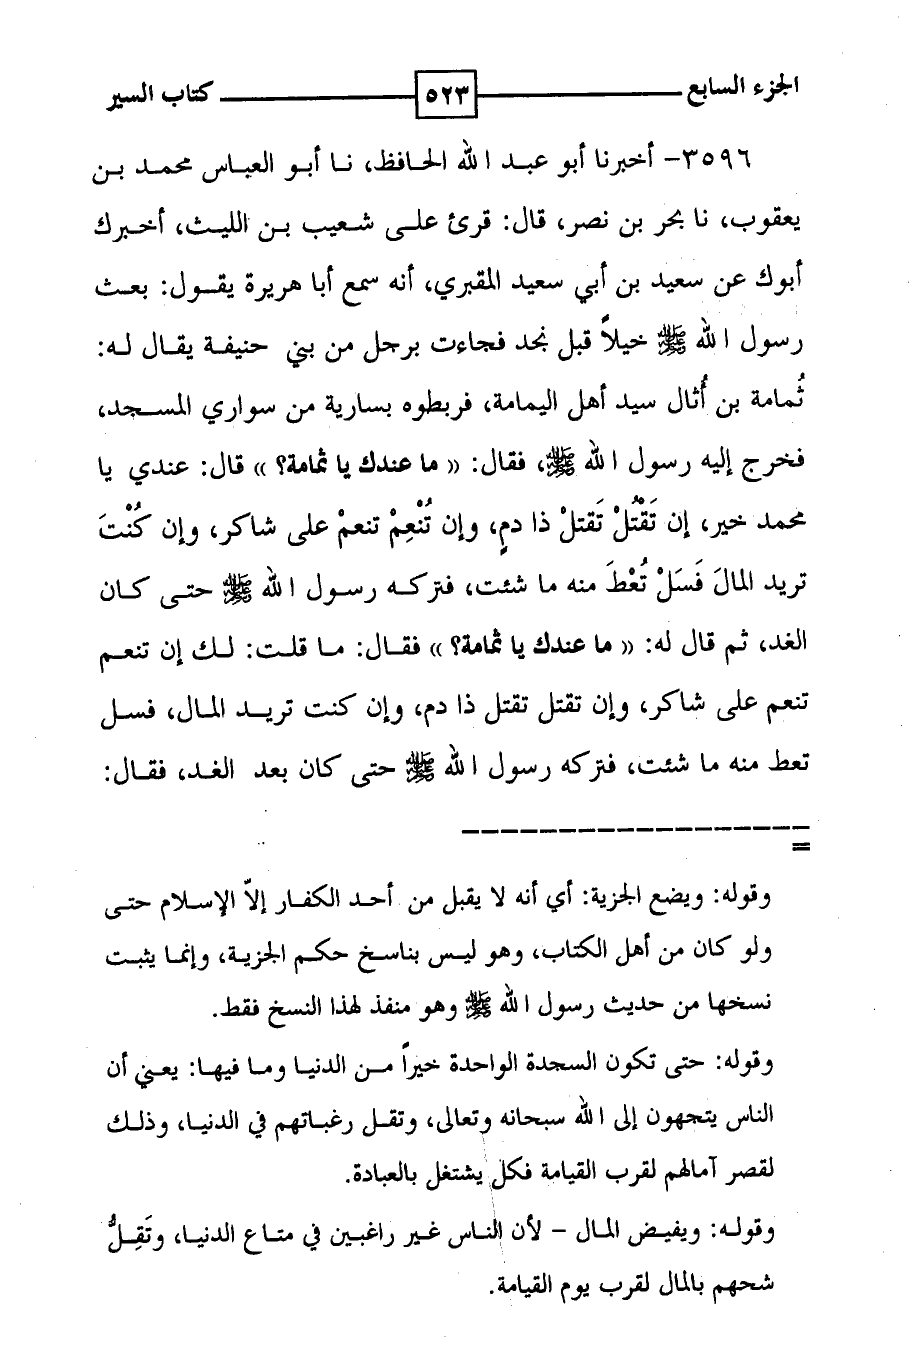 الجزء السابع ٥٢٣ كتاب السير
٣٥٩٦- أخبرنا أبو عبد الله الحافظ، نا أبو العباس محمد بن
يعقوب، نا بحر بن نصر، قال: قرئ على شعيب بن الليث، أخبرك
أبوك عن سعيد بن أبي سعيد المقبري، أنه سمع أبا هريرة يقول: بعث
رسول الله ﷺ خيلاً قبل نجد فجاءت برجل من بني حنيفة يقال له:
ثُمامة بن أُثال سيد أهل اليمامة، فربطوه بسارية من سواري المسجد،
فخرج إليه رسول الله ﷺ، فقال: «ما عندك يا ثمامة؟» قال: عندي يا
محمد خير، إن تَقْتُلْ تَقتلْ ذا دمٍ، وإن تُنْعِمْ تنعمْ على شاكر، وإن كُنْتَ
تريد المالَ فَسَلْ تُعْطَ منه ما شئت، فتركه رسول الله ﷺ حتى كان
الغد، ثم قال له: «ما عندك يا ثمامة؟» فقال: ما قلت: لك إن تنعم
تنعم على شاكر، وإن تقتل تقتل ذا دم، وإن كنت تريد المال، فسل
تعط منه ما شئت، فتركه رسول الله ﷺ حتى كان بعد الغد، فقال:
=
وقوله: ويضع الجزية: أي أنه لا يقبل من أحد الكفار إلاّ الإسلام حتى
ولو كان من أهل الكتاب، وهو ليس بناسخ حكم الجزية، وإنما يثبت
نسخها من حديث رسول الله ﷺ وهو منفذ لهذا النسخ فقط.
وقوله: حتى تكون السجدة الواحدة خيراً من الدنيا وما فيها: يعني أن
الناس يتجهون إلى الله سبحانه وتعالى، وتقل رغباتهم في الدنيا، وذلك
لقصر آمالهم لقرب القيامة فكل يشتغل بالعبادة.
وقوله: ويفيض المال - لأن الناس غير راغبين في متاع الدنيا، وتَقِلُّ
شحهم بالمال لقرب يوم القيامة.